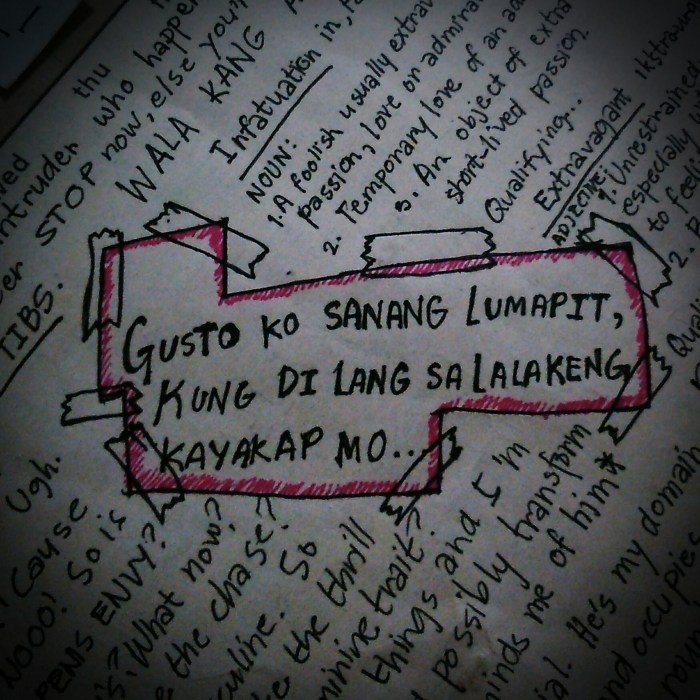 thu
who happen
intruder
STOP now, else your
WALA KANG
TIBS.
Infatuation in,
NOUN:
1. A foolish usually extrav
passion, love or admira
2. Temporary love of an ad
3. An object of extra
short-lived passion.
Qualifying...
Extravagant
ADJECTIVE:
1. Unrestrained
especially
to feel
2.
GUSTO KO SANANG LUMAPIT,
KUNG DI LANG SA LALAKENG
KAYAKAP MO...
Ugh.
Cause
NOOO! So is
PENIS ENVY?
What now?
the chase?
culine. So
the thrill
minine trait?
things and I'm
possibly transform
minds me of him*
al. He's my domain
nd occupie